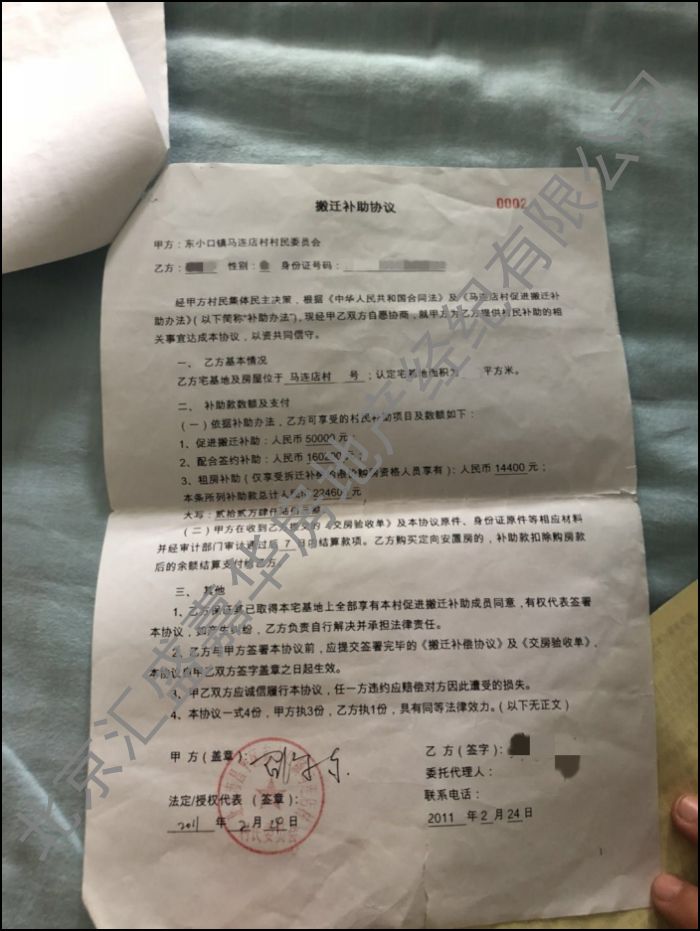 搬迁补助协议
0002
甲方：东小口镇马连店村村民委员会
乙方： 性别： 身份证号码：
经甲方村民集体民主决策，根据《中华人民共和国合同法》及《马连店村促进搬迁补
助办法》（以下简称“补助办法”），现经甲乙双方自愿协商，就甲方为乙方提供村民补助的相
关事宜达成本协议，以资共同信守。
一、 乙方基本情况
乙方宅基地及房屋位于 马连店村 号；认定宅基地面积为 平方米。
二、 补助款数额及支付
（一）依据补助办法，乙方可享受的村民补助项目及数额如下：
1、促进搬迁补助：人民币 50000 元；
2、配合签约补助：人民币 160200 元；
3、租房补助（仅享受拆迁补偿 购 资格人员享有）：人民币 14400 元；
本条所列补助款总计人民币 22460 元，
大写：贰拾贰万肆仟
（二）甲方在收到乙方提交的《交房验收单》及本协议原件、身份证原件等相应材料
并经审计部门审计通过后 7 日内结算款项。乙方购买定向安置房的，补助款扣除购房款
后的余额结算支付给乙方。
三、 其他
1、乙方保证其已取得本宅基地上全部享有本村促进搬迁补助成员同意，有权代表签署
本协议，如产生纠纷，乙方负责自行解决并承担法律责任。
2、乙方与甲方签署本协议前，应提交签署完毕的《搬迁补偿协议》及《交房验收单》，
本协议自甲乙双方签字盖章之日起生效。
3、甲乙双方应诚信履行本协议，任一方违约应赔偿对方因此遭受的损失。
4、本协议一式4份，甲方执3份，乙方执1份，具有同等法律效力。（以下无正文）
甲 方（盖章）：
乙 方（签字）：
委托代理人：
法定/授权代表 （签章）：
联系电话：
2011 年 2 月 日
2011 年 2 月 24 日
村民委员会
1
北京汇盛嘉华房地产经纪有限公司